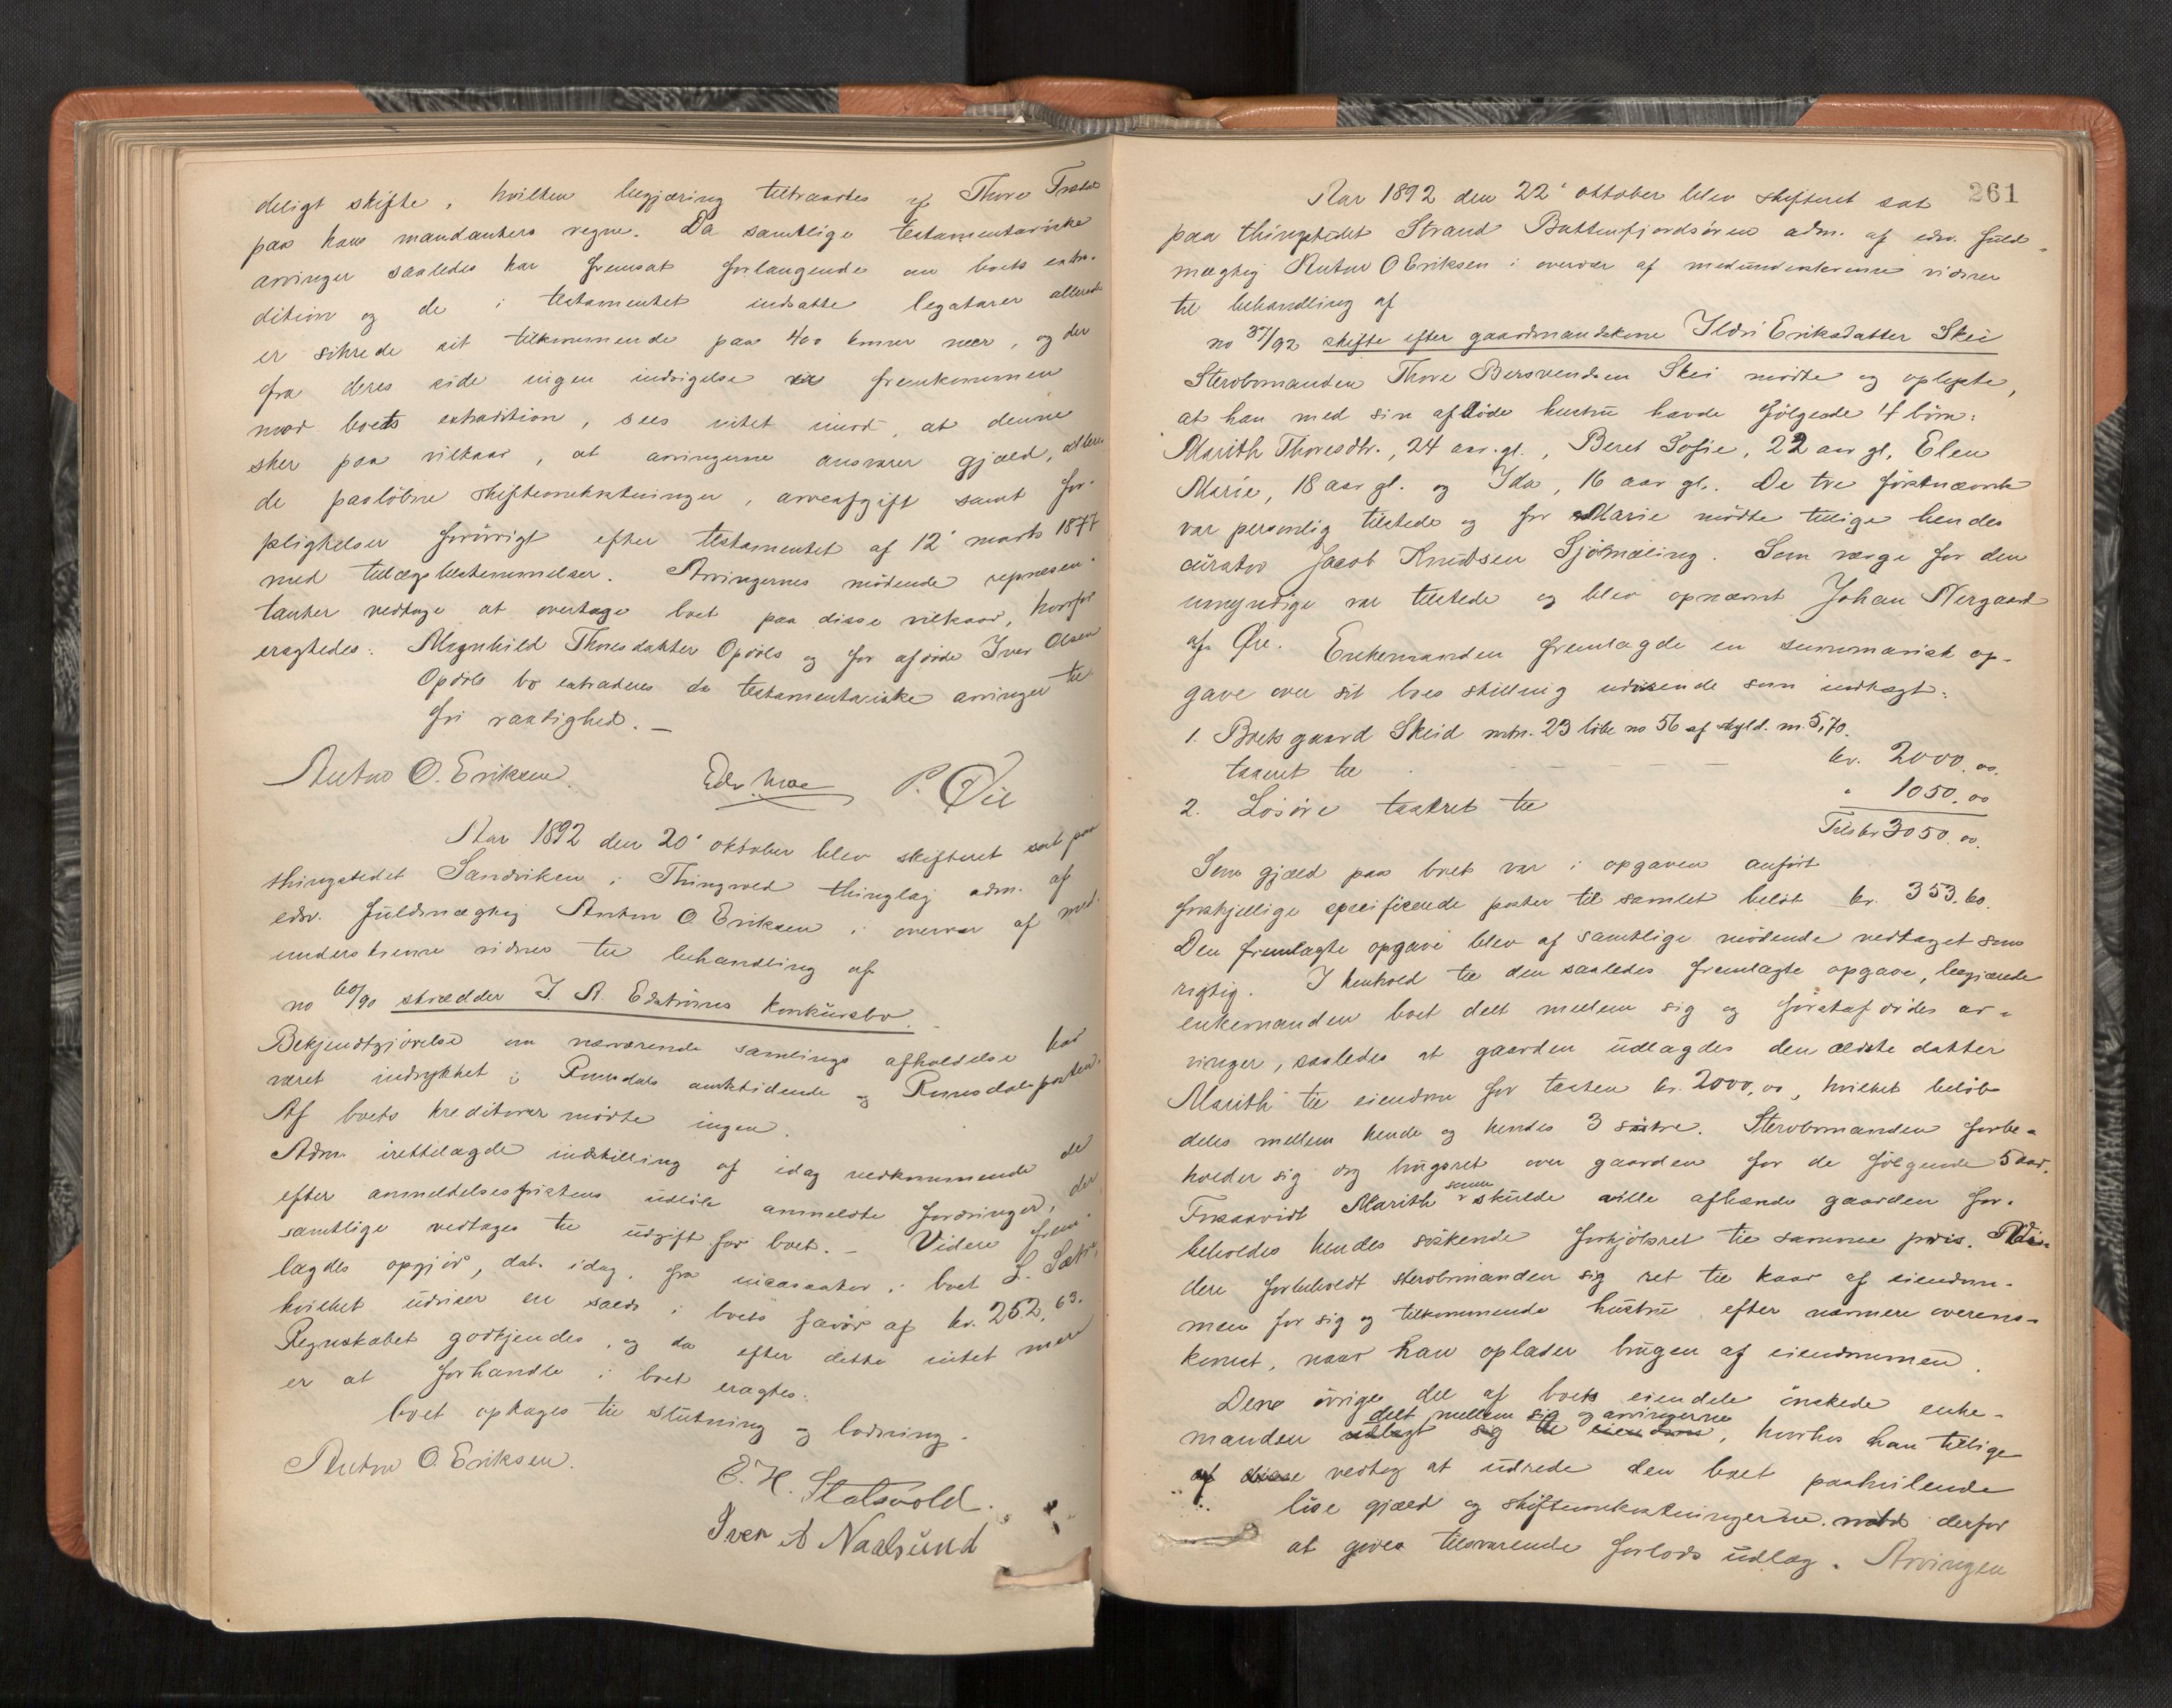 deligt skifte, hvilken begjæring tiltraadtes af Thore
paa hans mandanters vegne. Da samtlige testamentariske
arvinger saaledes har fremsat forlangende om boets extra-
dition og de i testamentet indsatte legatarer allerede
er sikrede sit tilkommende paa 400 kroner nær, og der
fra deres side ingen indsigelse er fremkommen
mod boets extradition, sees intet imod, at denne
sker paa vilkaar, at arvingerne ansvarer gjæld, allere-
de paaløbne skifteomkostninger, arveafgift samt for-
pligtelser forøvrigt efter testamentet af 12' marts 1877
med tillægsbestemmelser. Arvingernes mødende repræsen-
tanter vedtage at overtage boet paa disse vilkaar, hvorfor
eragtedes: Magnhild Thoresdatter Opdøls og for afdøde Iver Olsen
Opdøls bo extraderes de testamentariske arvinger til
fri raadighed. –
Anton O. Eriksen. Edv Moe P. Øie
Aar 1892 den 20' oktober blev skifteret sat paa
thingstedet Sandviken i Thingvold thinglag adm. af
edsv. fuldmægtig Anton O. Eriksen i overvær af med-
underskrevne vidner til behandling af
no 60/90 skrædder J. A. Edstrøms konkursbo.
Bekjendtgjørelse om nærværende samlings afholdelse har
været indrykket i Romsdals amtstidende og Romsdalsposten.
Af boets kreditorer mødte ingen.
Adm. irettelagde indstilling af idag vedkommende de
efter anmeldelsesfristens udløb anmeldte fordringer, der
samtlige vedtages til udgift for boet. – Videre frem-
lagdes opgjør, dat. idag, fra incassator i boet L. Sæter,
hvilket udviser en saldo i boets favør af kr. 252,63.
Regnskabet godkjendes, og da efter dette intet mere
er at forhandle i boet eragtes:
boet optages til slutning og lodning.
Anton O. Eriksen.
E. H. Stolsvold.
Iver A Naalsund
261
Aar 1892 den 22' oktober blev skifteret sat
paa thingstedet Strand Battenfjordsøren adm. af edsv. fuld-
mægtig Anton O Eriksen i overvær af medunderskrevne vidner
til behandling af
no 37/92 skifte efter gaardmandskone Ildri Eriksdatter Skei
Stervbomanden Thore Bersvendsen Skei mødte og oplyste,
at han med sin afdøde hustru havde følgende 4 børn:
Marith Thoresdtr., 24 aar gl., Beret Sofie, 22 aar gl, Elen
Marie, 18 aar gl. og Ida, 16 aar gl. De tre førstnævnte
var personlig tilstede og for Marie mødte tillige hendes
curator Jacob Knudsen Sjømæling. Som verge for den
umyndige var tilstede og blev opnævnt Johan Nergaard
af Øre. Enkemanden fremlagde en summarisk op-
gave over sit boes stilling udvisende som indtægt:
1. Boets gaard Skeid mtn. 23 løbe no 56 af skyld. m. 5,70.
taxeret til – – – – – kr. 2000,00.
2. Løsøre taxeret til " 1050,00
Tils kr 3050,00.
Som gjæld paa boet var i opgaven anført
forskjellige specificerede poster til samlet beløb kr. 353.60.
Den fremlagte opgave blev af samtlige mødende vedtaget som
rigtig. I henhold til den saaledes fremlagte opgave, begjærede
enkemanden boet delt mellem sig og førstafdødes ar-
vinger, saaledes at gaarden udlagdes den ældste datter
Marith til eiendom for taxten kr. 2000,00, hvilket beløb
deles mellem hende og hendes 3 søstre. Stervbomanden forbe-
holder sig dog brugsret over gaarden for de følgende 5 aar.
Forsaavidt Marith senere skulde ville afhænde gaarden for-
beholdes hendes søskende forkjøbsret til samme pris. Vi-
dere forbeholdt stervbomanden sig ret til kaar af eiendom-
men for sig og tilkommende hustru efter nærmere overens-
komst, naar han oplader brugen af eiendommen.
Den øvrige del af boets eiendele ønskede enke-
delt mellem sig og arvingerne
manden udlagt sig til eiendom, hvorhos han tillige
af disse vedtog at udrede den boet paahvilende
løse gjæld og skifteomkostningerne mod derfor
at gives tilsvarende forlods udlæg. Arvingen